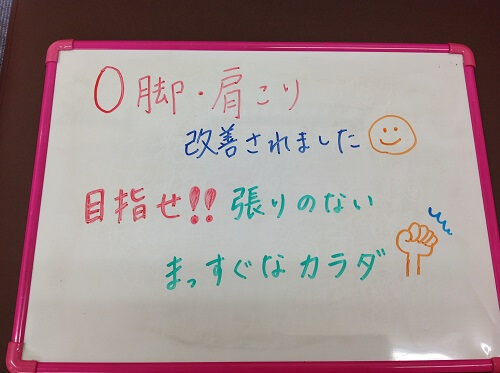 O脚・肩こり
改善されました
目指せ!!張りのない
まっすぐなカラダ